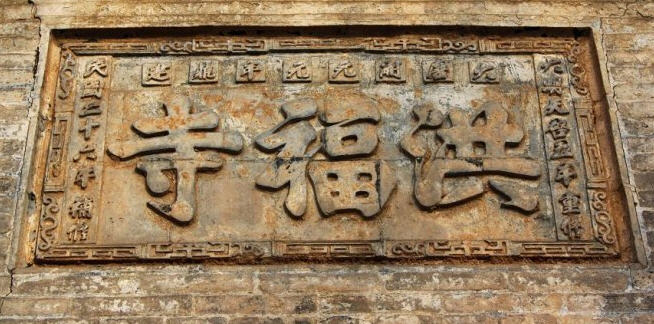 大唐開元元年建
大明天啓五年重修
洪福寺
民國二十六年補修